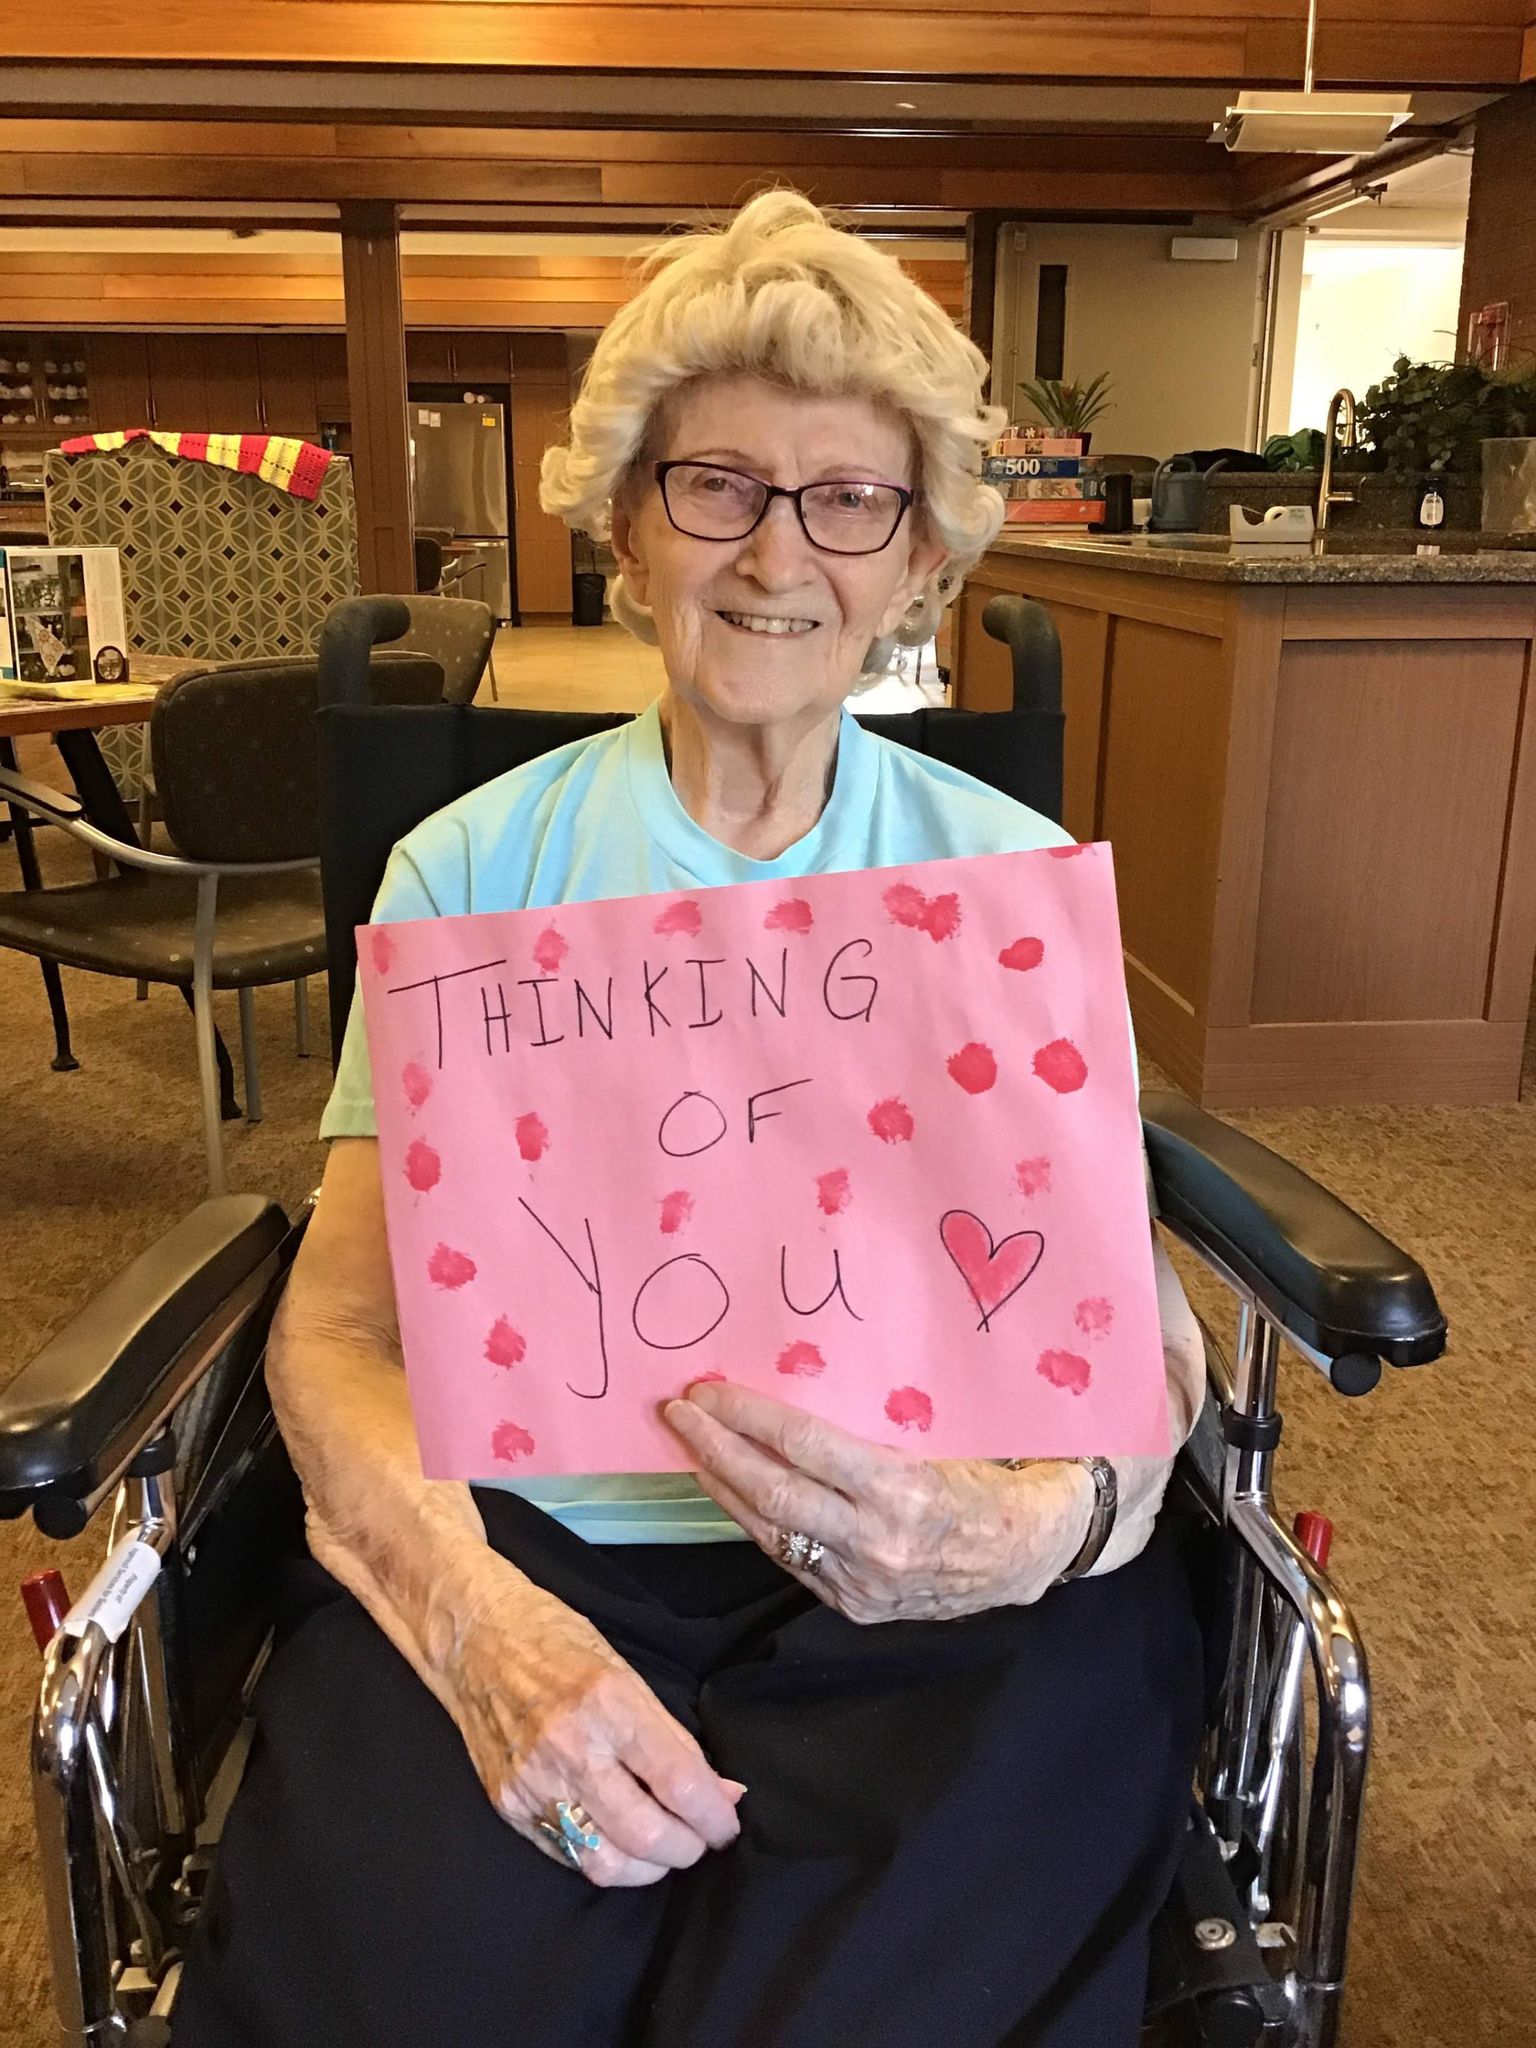 THINKING
OF
YOU
500